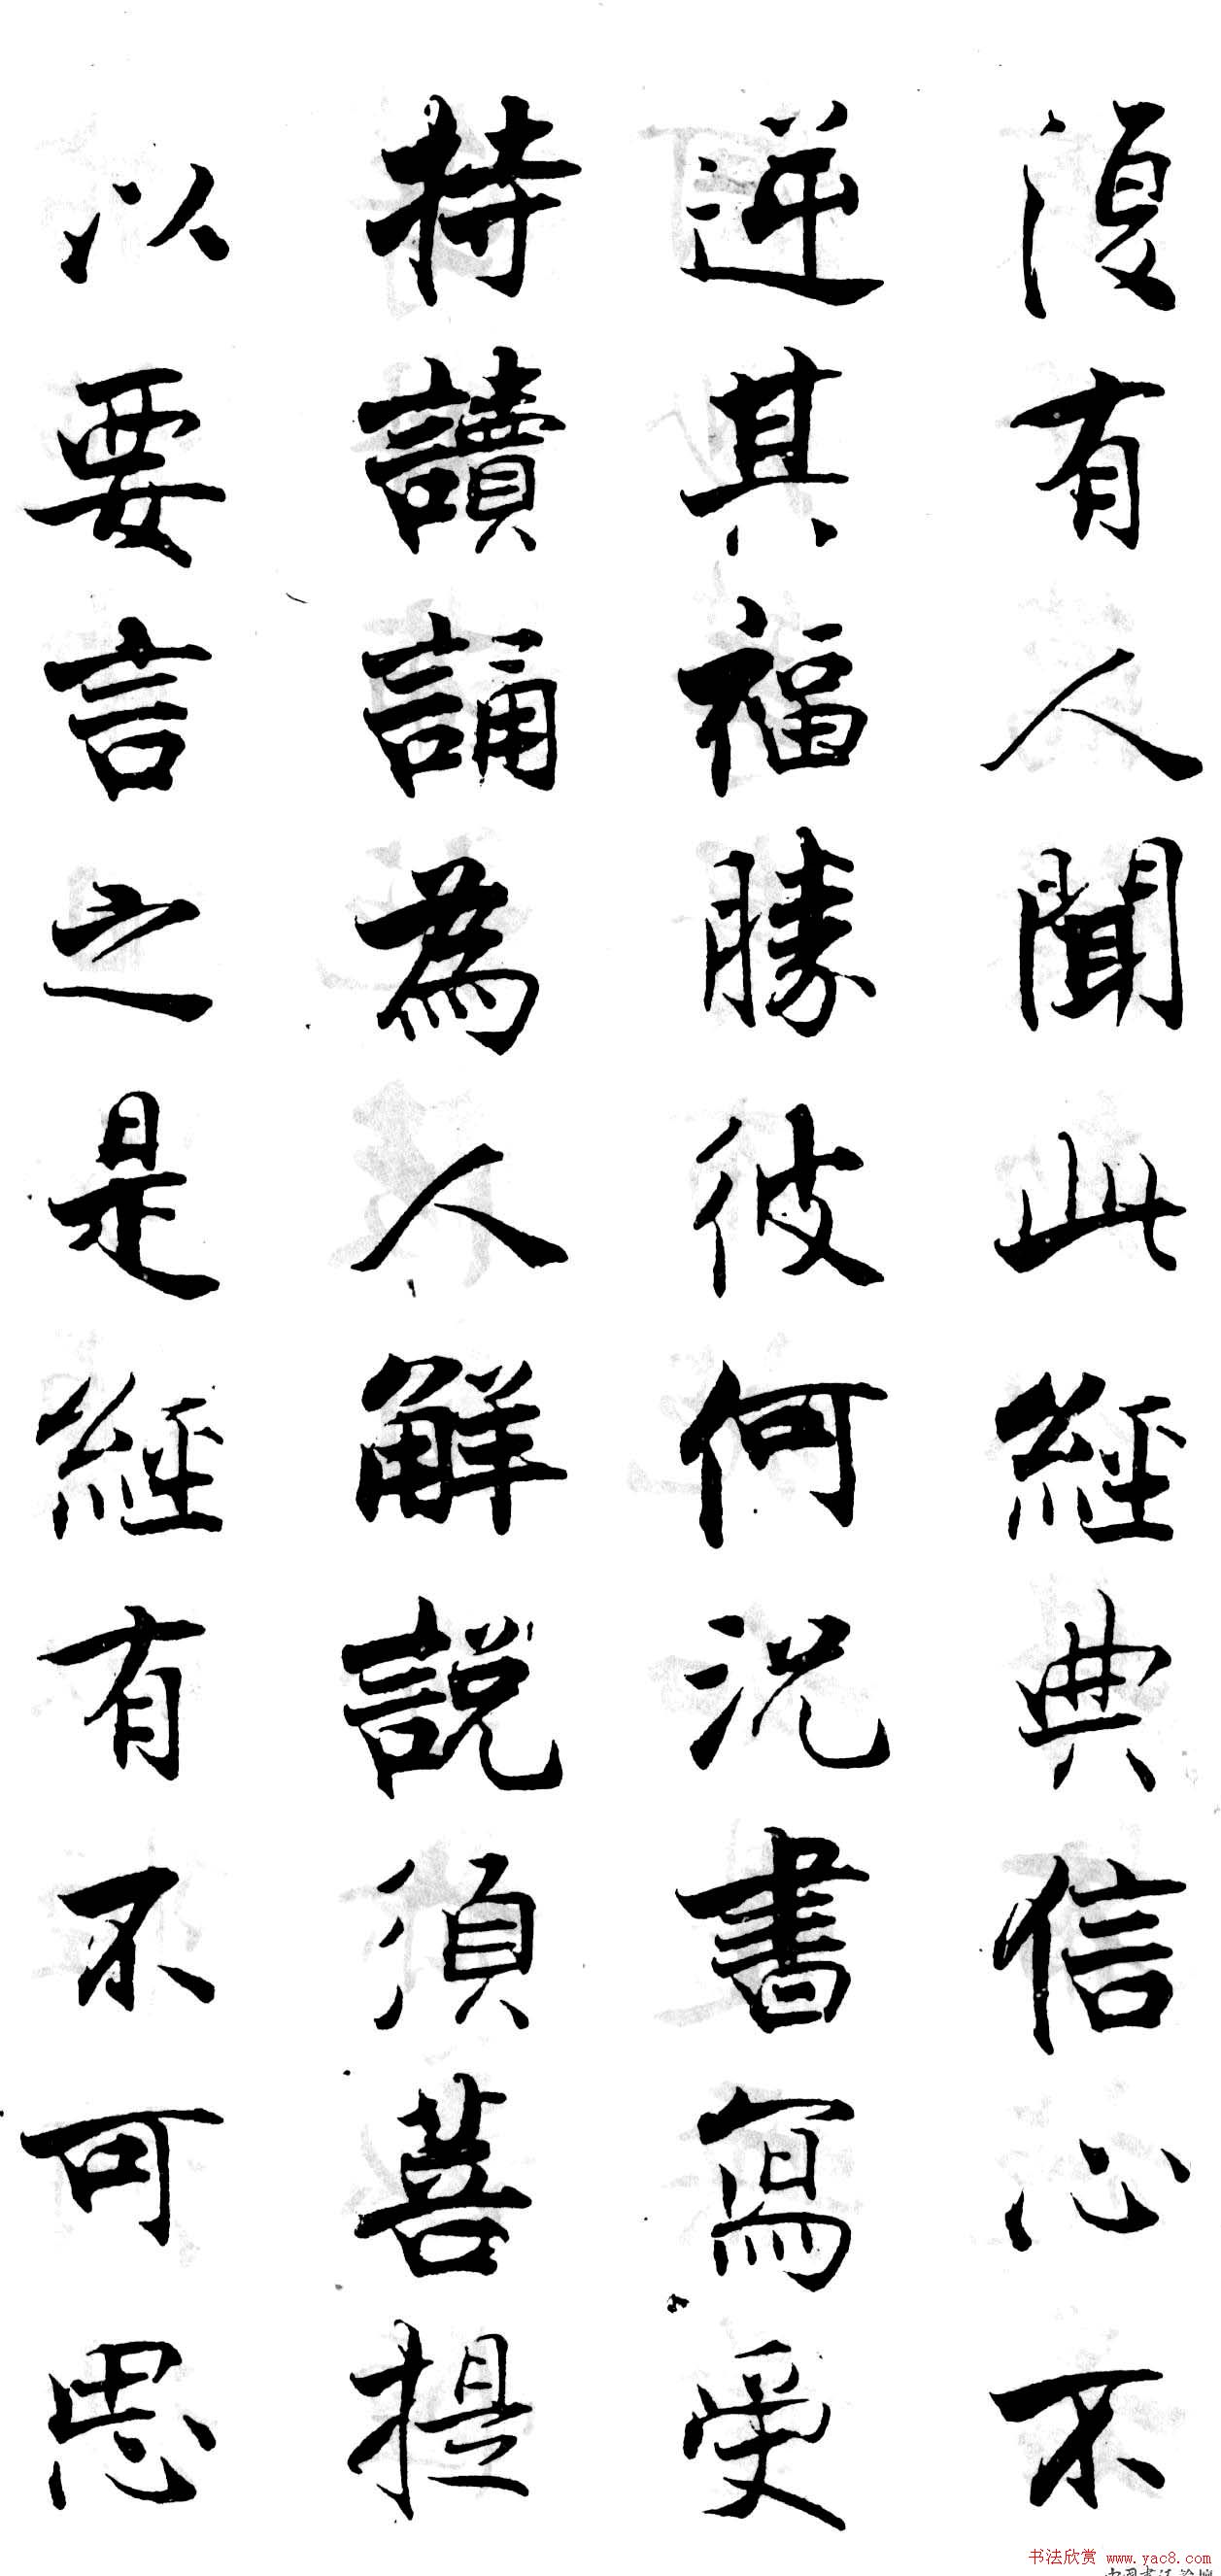 復有人聞此經典信心不
逆其福勝彼何況書寫受
持讀誦為人解說須菩提
以要言之是經有不可思
书法欣赏 www.yac8.com